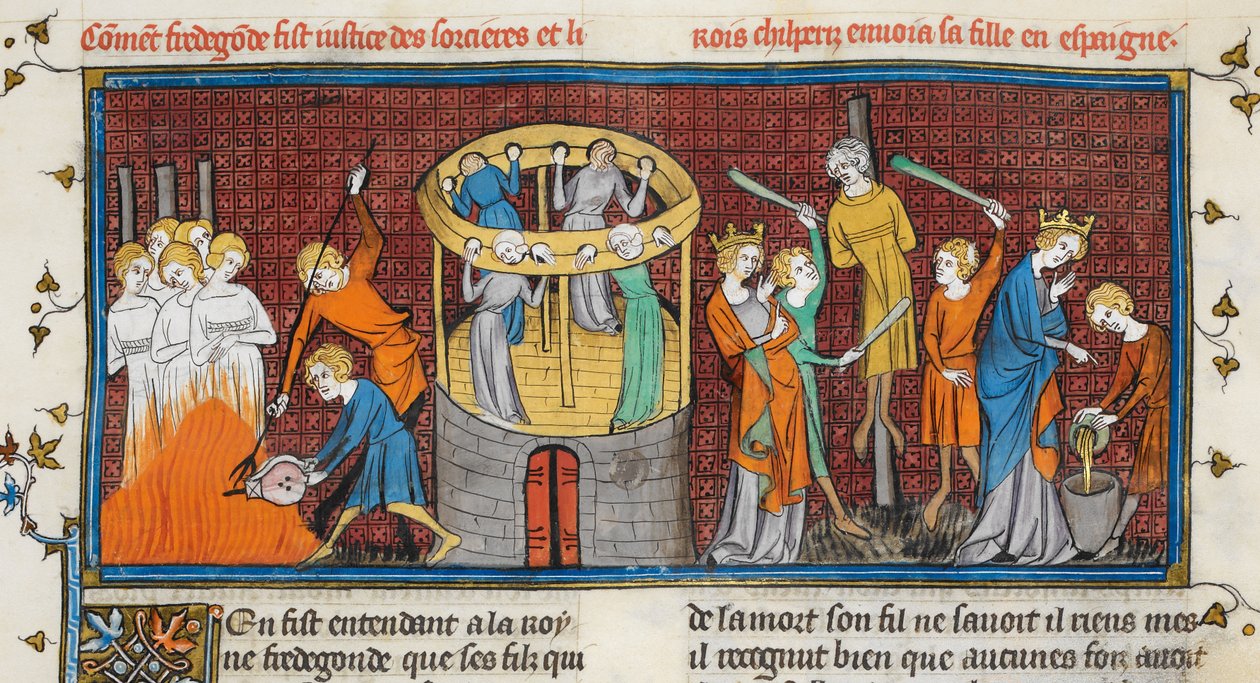 Com̄et fredegōde fist iustice des sorcieres et li
rois chilperiz enuoia sa fille en espaigne.
En fist entendant a la roy
ne fredegonde que ses filz qui
de la mort son fil ne sauoit il riens mes
il recognut bien que aucunes foiz auoit